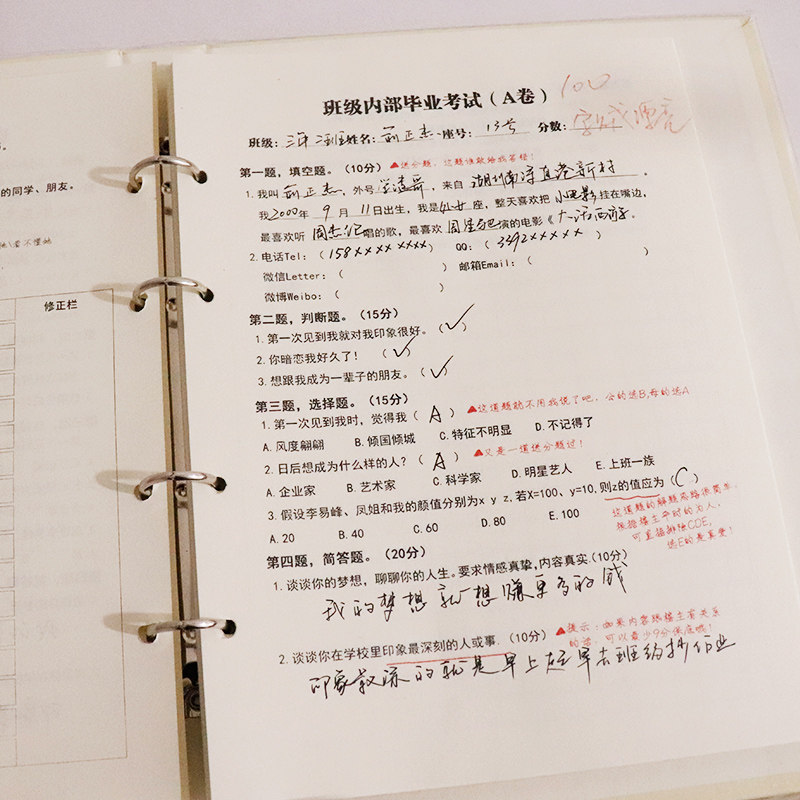 的同学、朋友。
修正栏
班级内部毕业考试（A卷）
100
班级：三年二班 姓名：俞正杰 座号：13号 分数：字写成漂亮
第一题，填空题。（10分） ▲送分题，这题谁敢给我答错！
1. 我叫俞正杰，外号 ，来自湖州南浔直巷新村。
我2000年9月11日出生，我是处女座，整天喜欢把小电影挂在嘴边，
最喜欢听周杰伦唱的歌，最喜欢周星驰演的电影《大话西游。
2. 电话Tel：（158×××× ××××） QQ：（3392×××××）
微信Letter：（ ） 邮箱Email：（ ）
微博Weibo：（ ）
第二题，判断题。（15分）
1. 第一次见到我就对我印象很好。（✓）
2. 你暗恋我好久了！（✓）
3. 想跟我成为一辈子的朋友。（✓）
第三题，选择题。（15分）
1. 第一次见到我时，觉得我（A） ▲这道题能不用我说了吧，公的选B,母的选A
A. 风度翩翩 B. 倾国倾城 C. 特征不明显 D. 不记得了
2. 日后想成为什么样的人？（A） ▲又是一道送分题过！
A. 企业家 B. 艺术家 C. 科学家 D. 明星艺人 E. 上班一族
3. 假设李易峰、凤姐和我的颜值分别为x y z,若X=100、y=10,则z的值应为（C）
A. 20 B. 40 C. 60 D. 80 E. 100
这道题的解题思路很简单，
根据楼主平时的为人，
可直接排除CDE，
选E的是真爱！
第四题，简答题。（20分）
1. 谈谈你的梦想，聊聊你的人生。要求情感真挚,内容真实.（10分）
我的梦想就想赚更多的钱
2. 谈谈你在学校里印象最深刻的人或事.（10分） ▲提示：如果内容跟楼主有关系
的话，可以最少9分保底哦！
印象最深的就是早上起早去班级抄作业